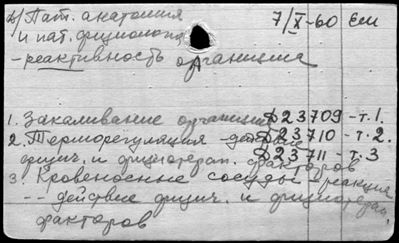 2) Пат. анатомия 7/X-60 Ем
и пат. физиология
- реактивность организма
1. Закаливание организма Д23709 - т.1.
2. Терморегуляция - действие Д23710 - т.2.
физич. и физиотерап. факторов Д23711 - т.3
3. Кровеносные сосуды - реакция
-- действие физич. и физиотерап.
факторов